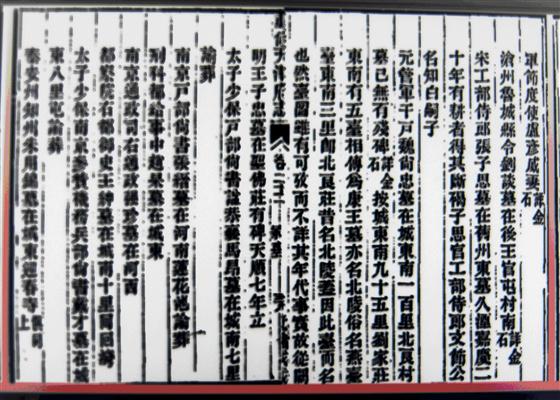 軍節度使盧彥威墓詳金石
滄州魯城縣令劉談墓在後王官屯村南詳金石
宋工部侍郎張子思墓在舊州東墓久湮嘉慶二
十年有耕者得其斷碣子思官工部侍郎文飾公
名知白嗣子
元管軍千戶魏尚忠墓在城東南一百里北良村
墓已無有殘碑詳金石按城東南九十五里劉家莊
東南有五臺相傳為康王墓亦名北陵俗名燕臺
臺東南三里卽北良莊昔名北陵蓋因此臺而名
也然臺固雖有可攷而不詳其年代事實故從闕
重修天津府志
明王子忠墓在聖佛莊有碑天順七年立
太子少保戶部尚書諡恭襄馬昂墓在城南七里
諭葬
南京戶部尚書張縉墓在河南蓮花池諭葬
刑科都給事中趙杲墓在城東
南京通政司右通政張珍墓在河西
都察院右都御史王紳墓在城南十里
太子少保南京參贊機務兵部尚書戴才墓在城
東八里屯諭葬
泰安州知州朱用錦墓在城東迎春亭俱同上